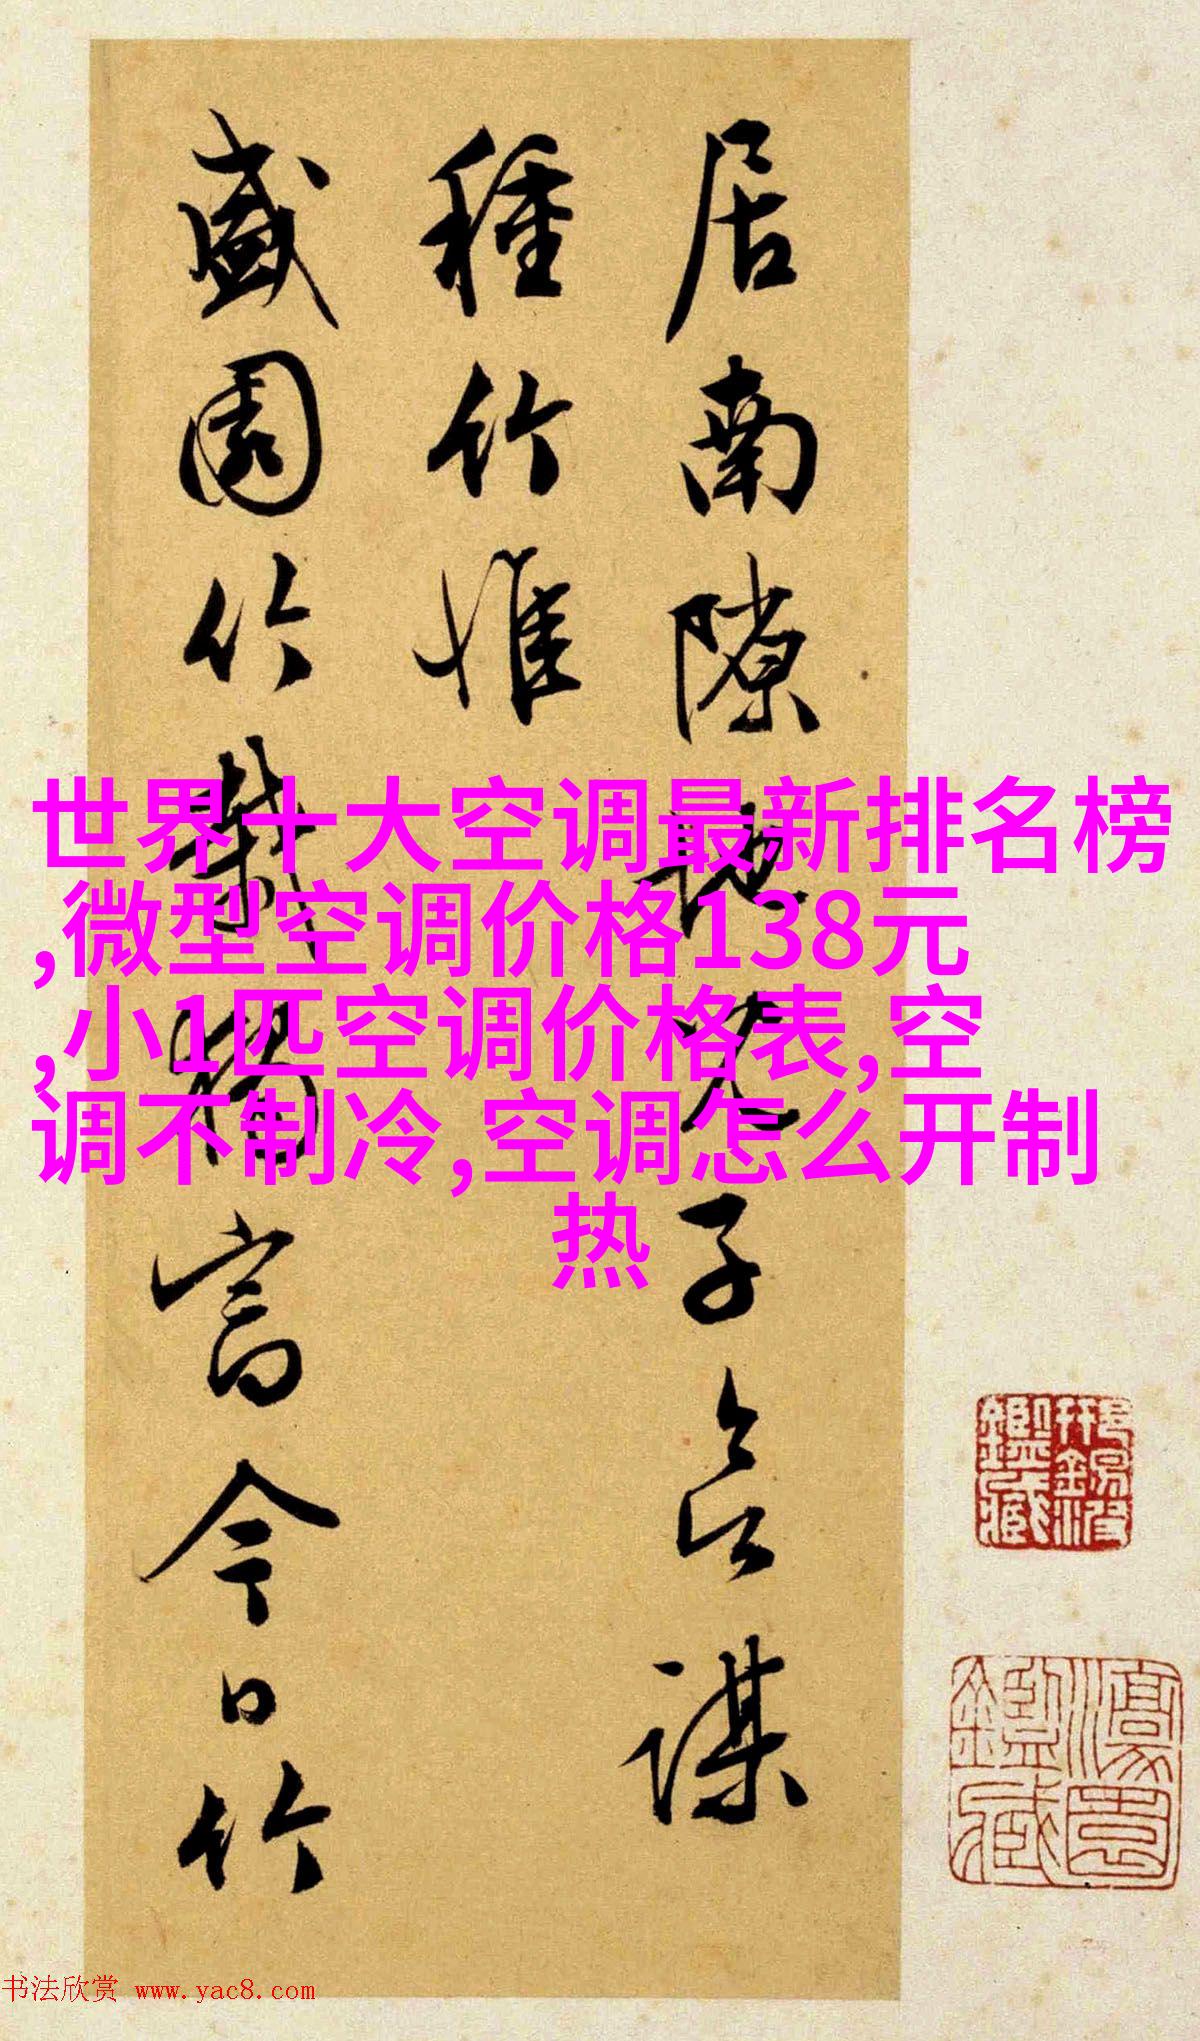 居南隙地兄子謀
種竹惟
盛園竹今日竹
世界十大空调最新排名榜
,微型空调价格138元
,小1匹空调价格表,空
调不制冷,空调怎么开制
热
鑑藏
鑑藏
书法欣赏 www.yac8.com